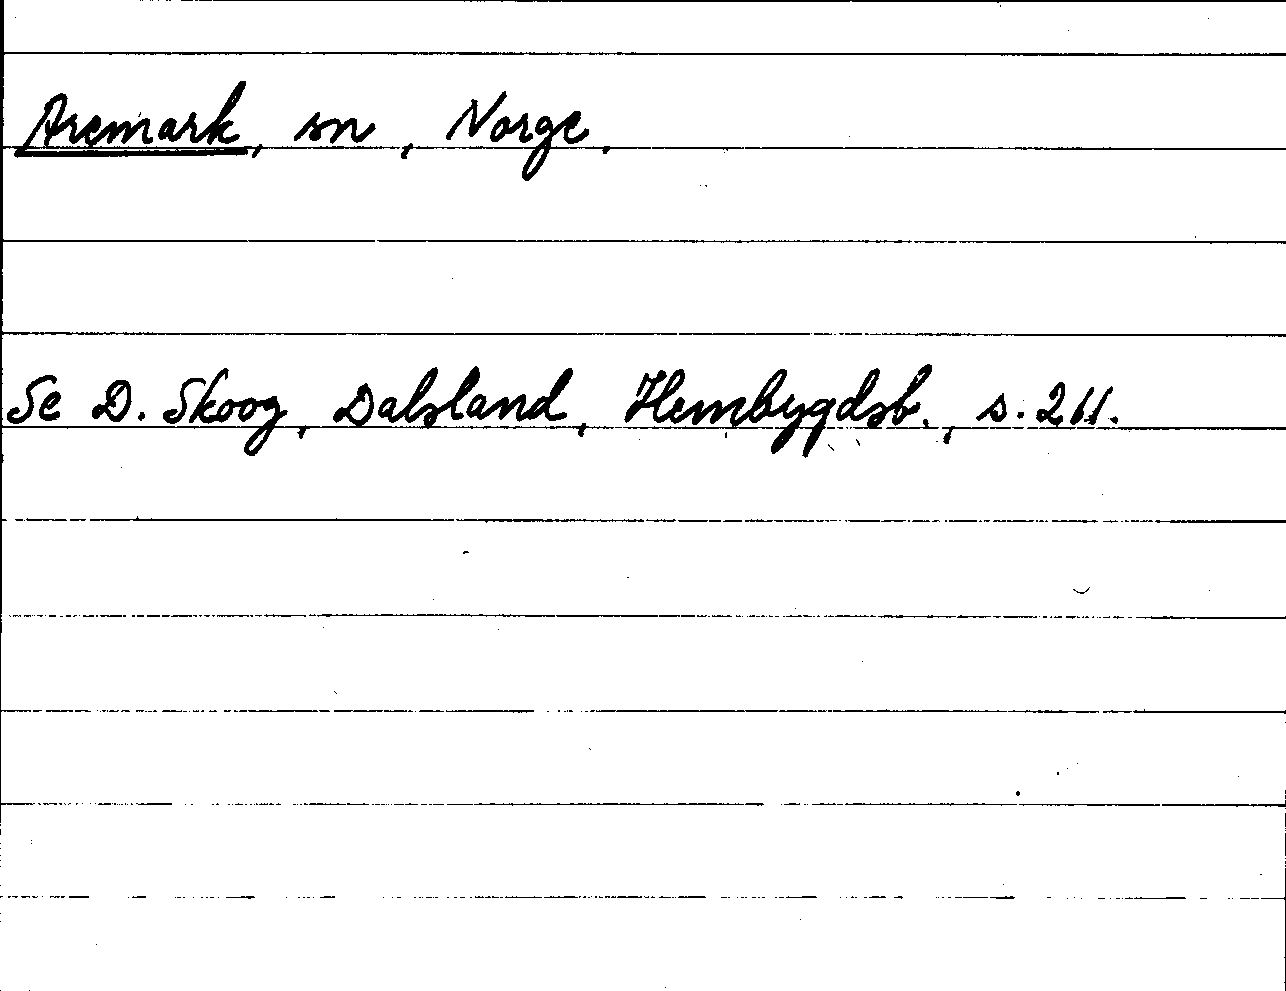 Aremark, sn, Norge.
Se D. Skoog, Dalsland, Hembygdsb., s. 261.